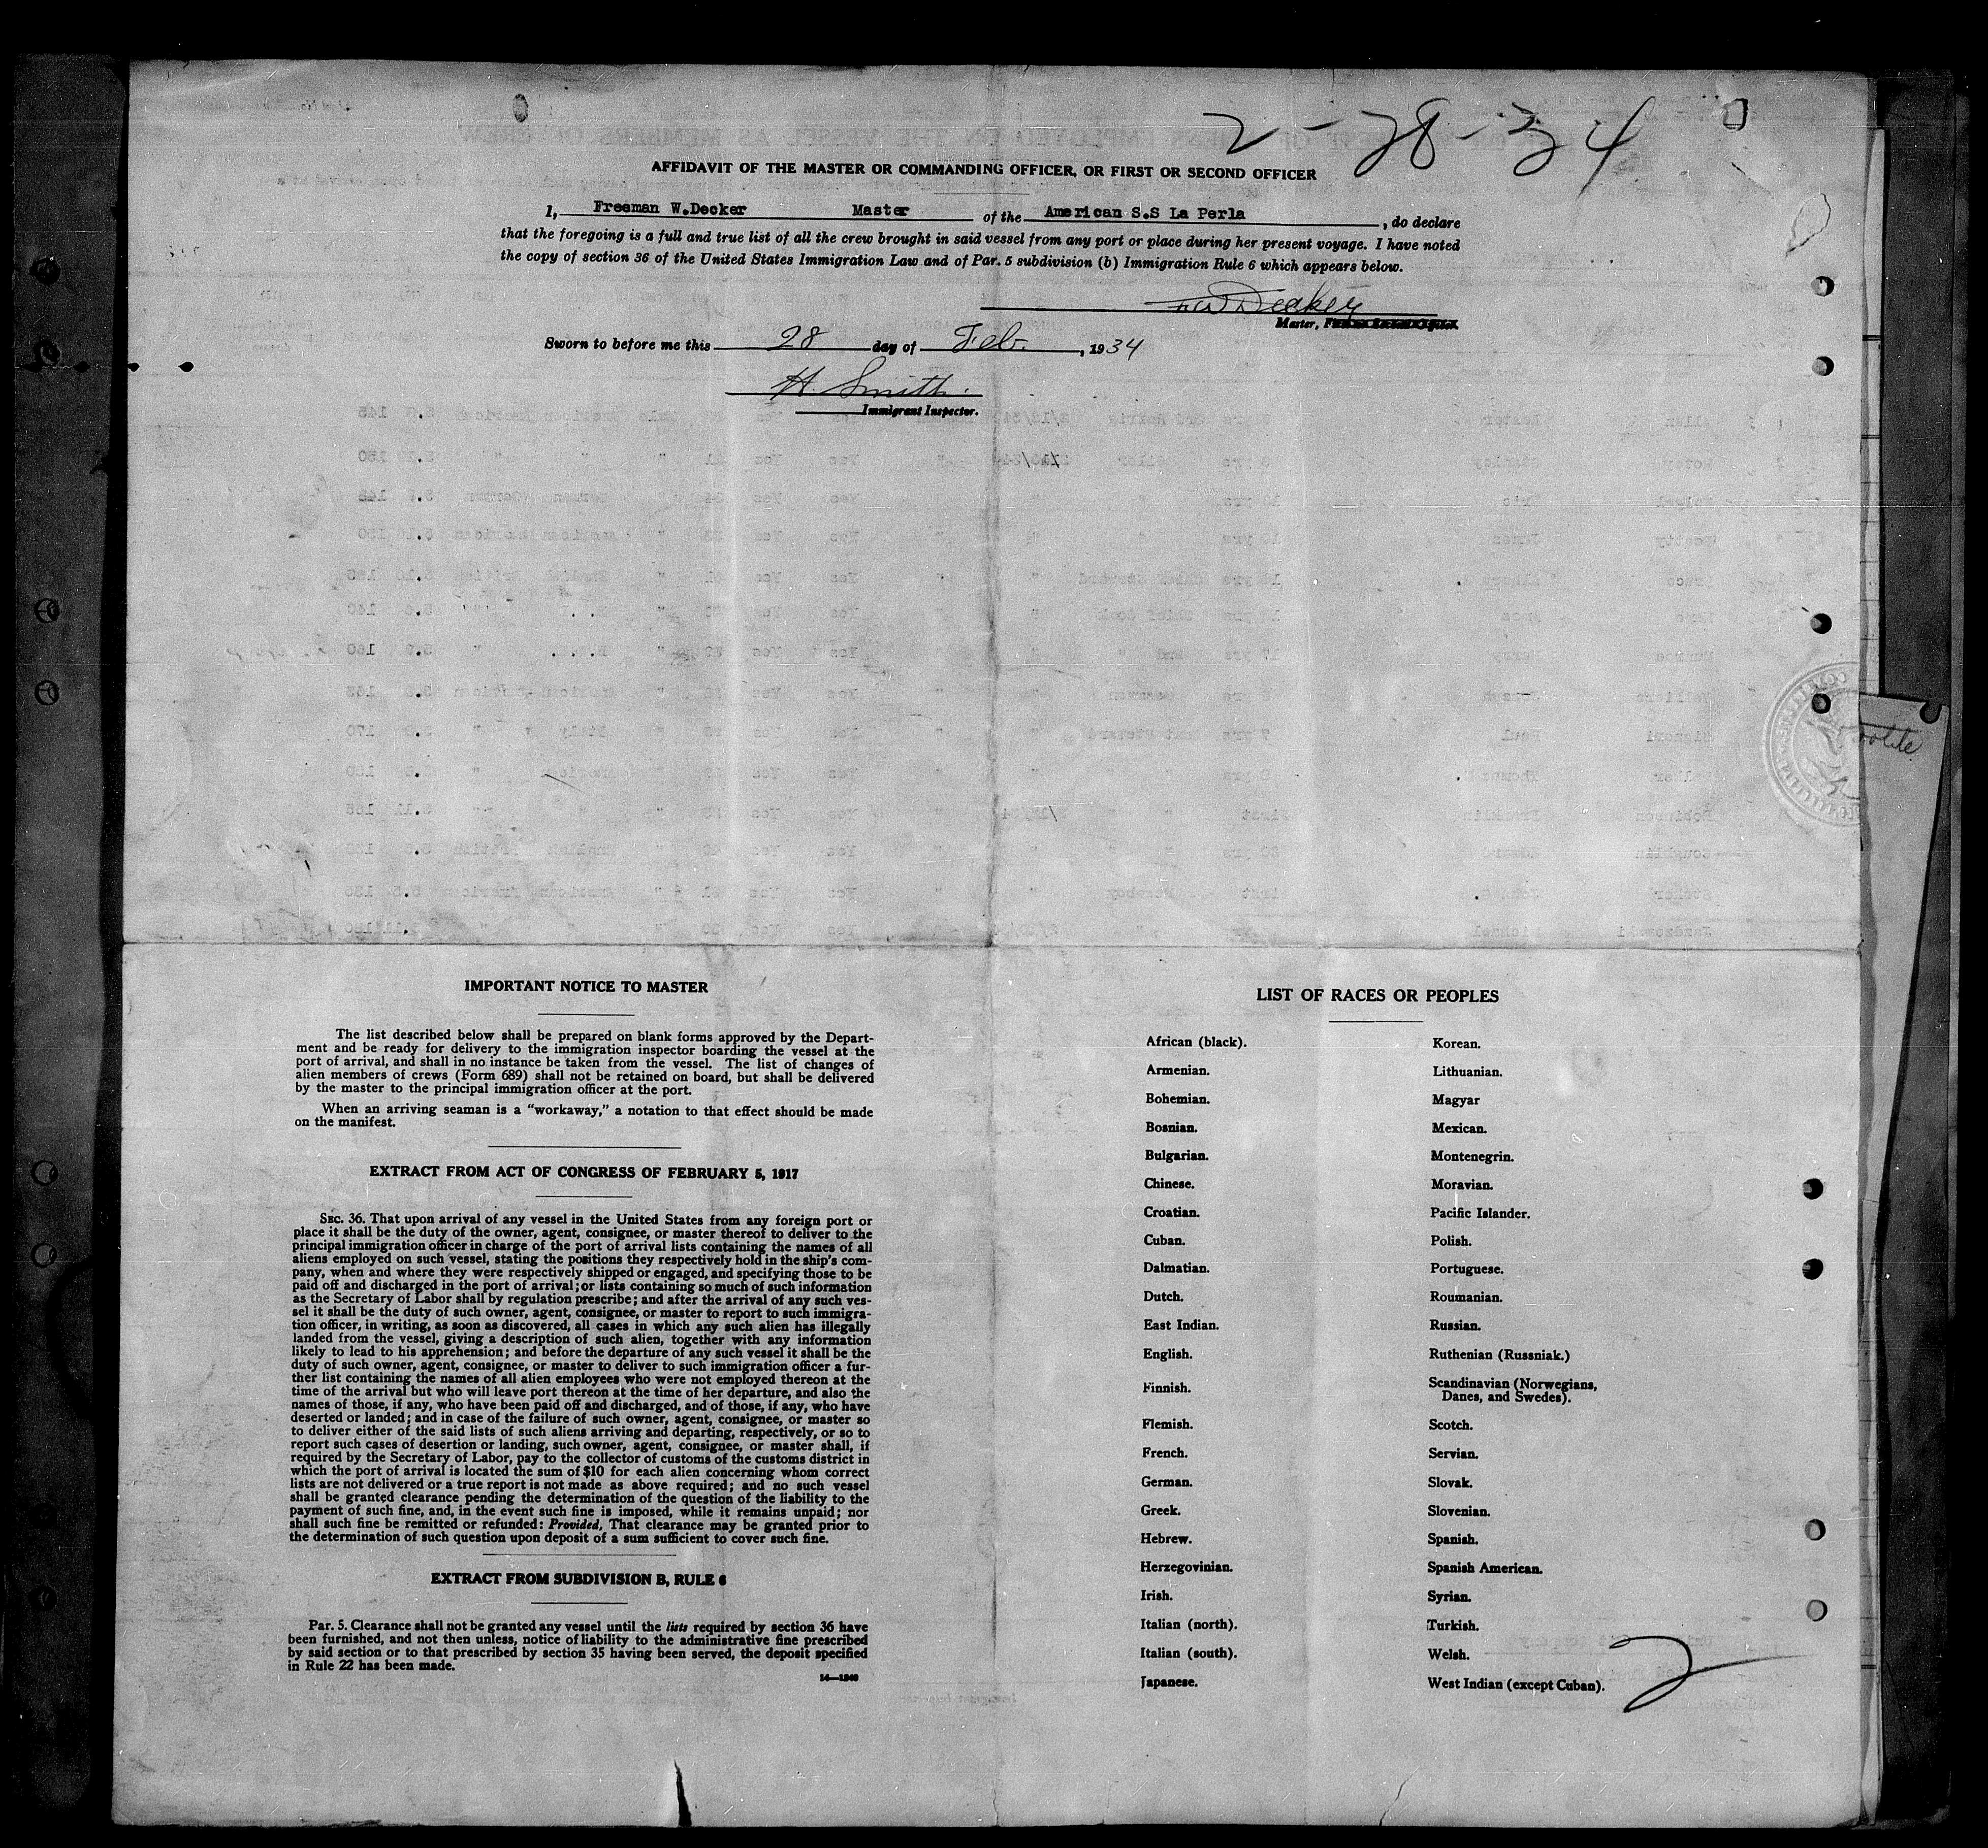 2-28-34
AFFIDAVIT OF THE MASTER OR COMMANDING OFFICER, OR FIRST OR SECOND OFFICER
I, Freeman W.Decker Master of the American S.S La Perla, do declare
that the foregoing is a full and true list of all the crew brought in said vessel from any port or place during her present voyage. I have noted
the copy of section 36 of the United States Immigration Law and of Par. 5 subdivision (b) Immigration Rule 6 which appears below.
FW Decker
Master,
Sworn to before me this 28 day of Feb., 1934
H. Smith.
Immigrant Inspector.
IMPORTANT NOTICE TO MASTER
The list described below shall be prepared on blank forms approved by the Depart-
ment and be ready for delivery to the immigration inspector boarding the vessel at the
port of arrival, and shall in no instance be taken from the vessel. The list of changes of
alien members of crews (Form 689) shall not be retained on board, but shall be delivered
by the master to the principal immigration officer at the port.
When an arriving seaman is a "workaway," a notation to that effect should be made
on the manifest.
EXTRACT FROM ACT OF CONGRESS OF FEBRUARY 5, 1917
SEC. 36. That upon arrival of any vessel in the United States from any foreign port or
place it shall be the duty of the owner, agent, consignee, or master thereof to deliver to the
principal immigration officer in charge of the port of arrival lists containing the names of all
aliens employed on such vessel, stating the positions they respectively hold in the ship's com-
pany, when and where they were respectively shipped or engaged, and specifying those to be
paid off and discharged in the port of arrival; or lists containing so much of such information
as the Secretary of Labor shall by regulation prescribe; and after the arrival of any such ves-
sel it shall be the duty of such owner, agent, consignee, or master to report to such immigra-
tion officer, in writing, as soon as discovered, all cases in which any such alien has illegally
landed from the vessel, giving a description of such alien, together with any information
likely to lead to his apprehension; and before the departure of any such vessel it shall be the
duty of such owner, agent, consignee, or master to deliver to such immigration officer a fur-
ther list containing the names of all alien employees who were not employed thereon at the
time of the arrival but who will leave port thereon at the time of her departure, and also the
names of those, if any, who have been paid off and discharged, and of those, if any, who have
deserted or landed; and in case of the failure of such owner, agent, consignee, or master so
to deliver either of the said lists of such aliens arriving and departing, respectively, or so to
report such cases of desertion or landing, such owner, agent, consignee, or master shall, if
required by the Secretary of Labor, pay to the collector of customs of the customs district in
which the port of arrival is located the sum of $10 for each alien concerning whom correct
lists are not delivered or a true report is not made as above required; and no such vessel
shall be granted clearance pending the determination of the question of the liability to the
payment of such fine, and, in the event such fine is imposed, while it remains unpaid; nor
shall such fine be remitted or refunded: Provided, That clearance may be granted prior to
the determination of such question upon deposit of a sum sufficient to cover such fine.
EXTRACT FROM SUBDIVISION B, RULE 6
Par. 5. Clearance shall not be granted any vessel until the lists required by section 36 have
been furnished, and not then unless, notice of liability to the administrative fine prescribed
by said section or to that prescribed by section 35 having been served, the deposit specified
in Rule 22 has been made.
LIST OF RACES OR PEOPLES
African (black).
Armenian.
Bohemian.
Bosnian.
Bulgarian.
Chinese.
Croatian.
Cuban.
Dalmatian.
Dutch.
East Indian.
English.
Finnish.
Flemish.
French.
German.
Greek.
Hebrew.
Herzegovinian.
Irish.
Italian (north).
Italian (south).
Japanese.
Korean.
Lithuanian.
Magyar
Mexican.
Montenegrin.
Moravian.
Pacific Islander.
Polish.
Portuguese.
Roumanian.
Russian.
Ruthenian (Russniak.)
Scandinavian (Norwegians,
Danes, and Swedes).
Scotch.
Servian.
Slovak.
Slovenian.
Spanish.
Spanish American.
Syrian.
Turkish.
Welsh.
West Indian (except Cuban).
2